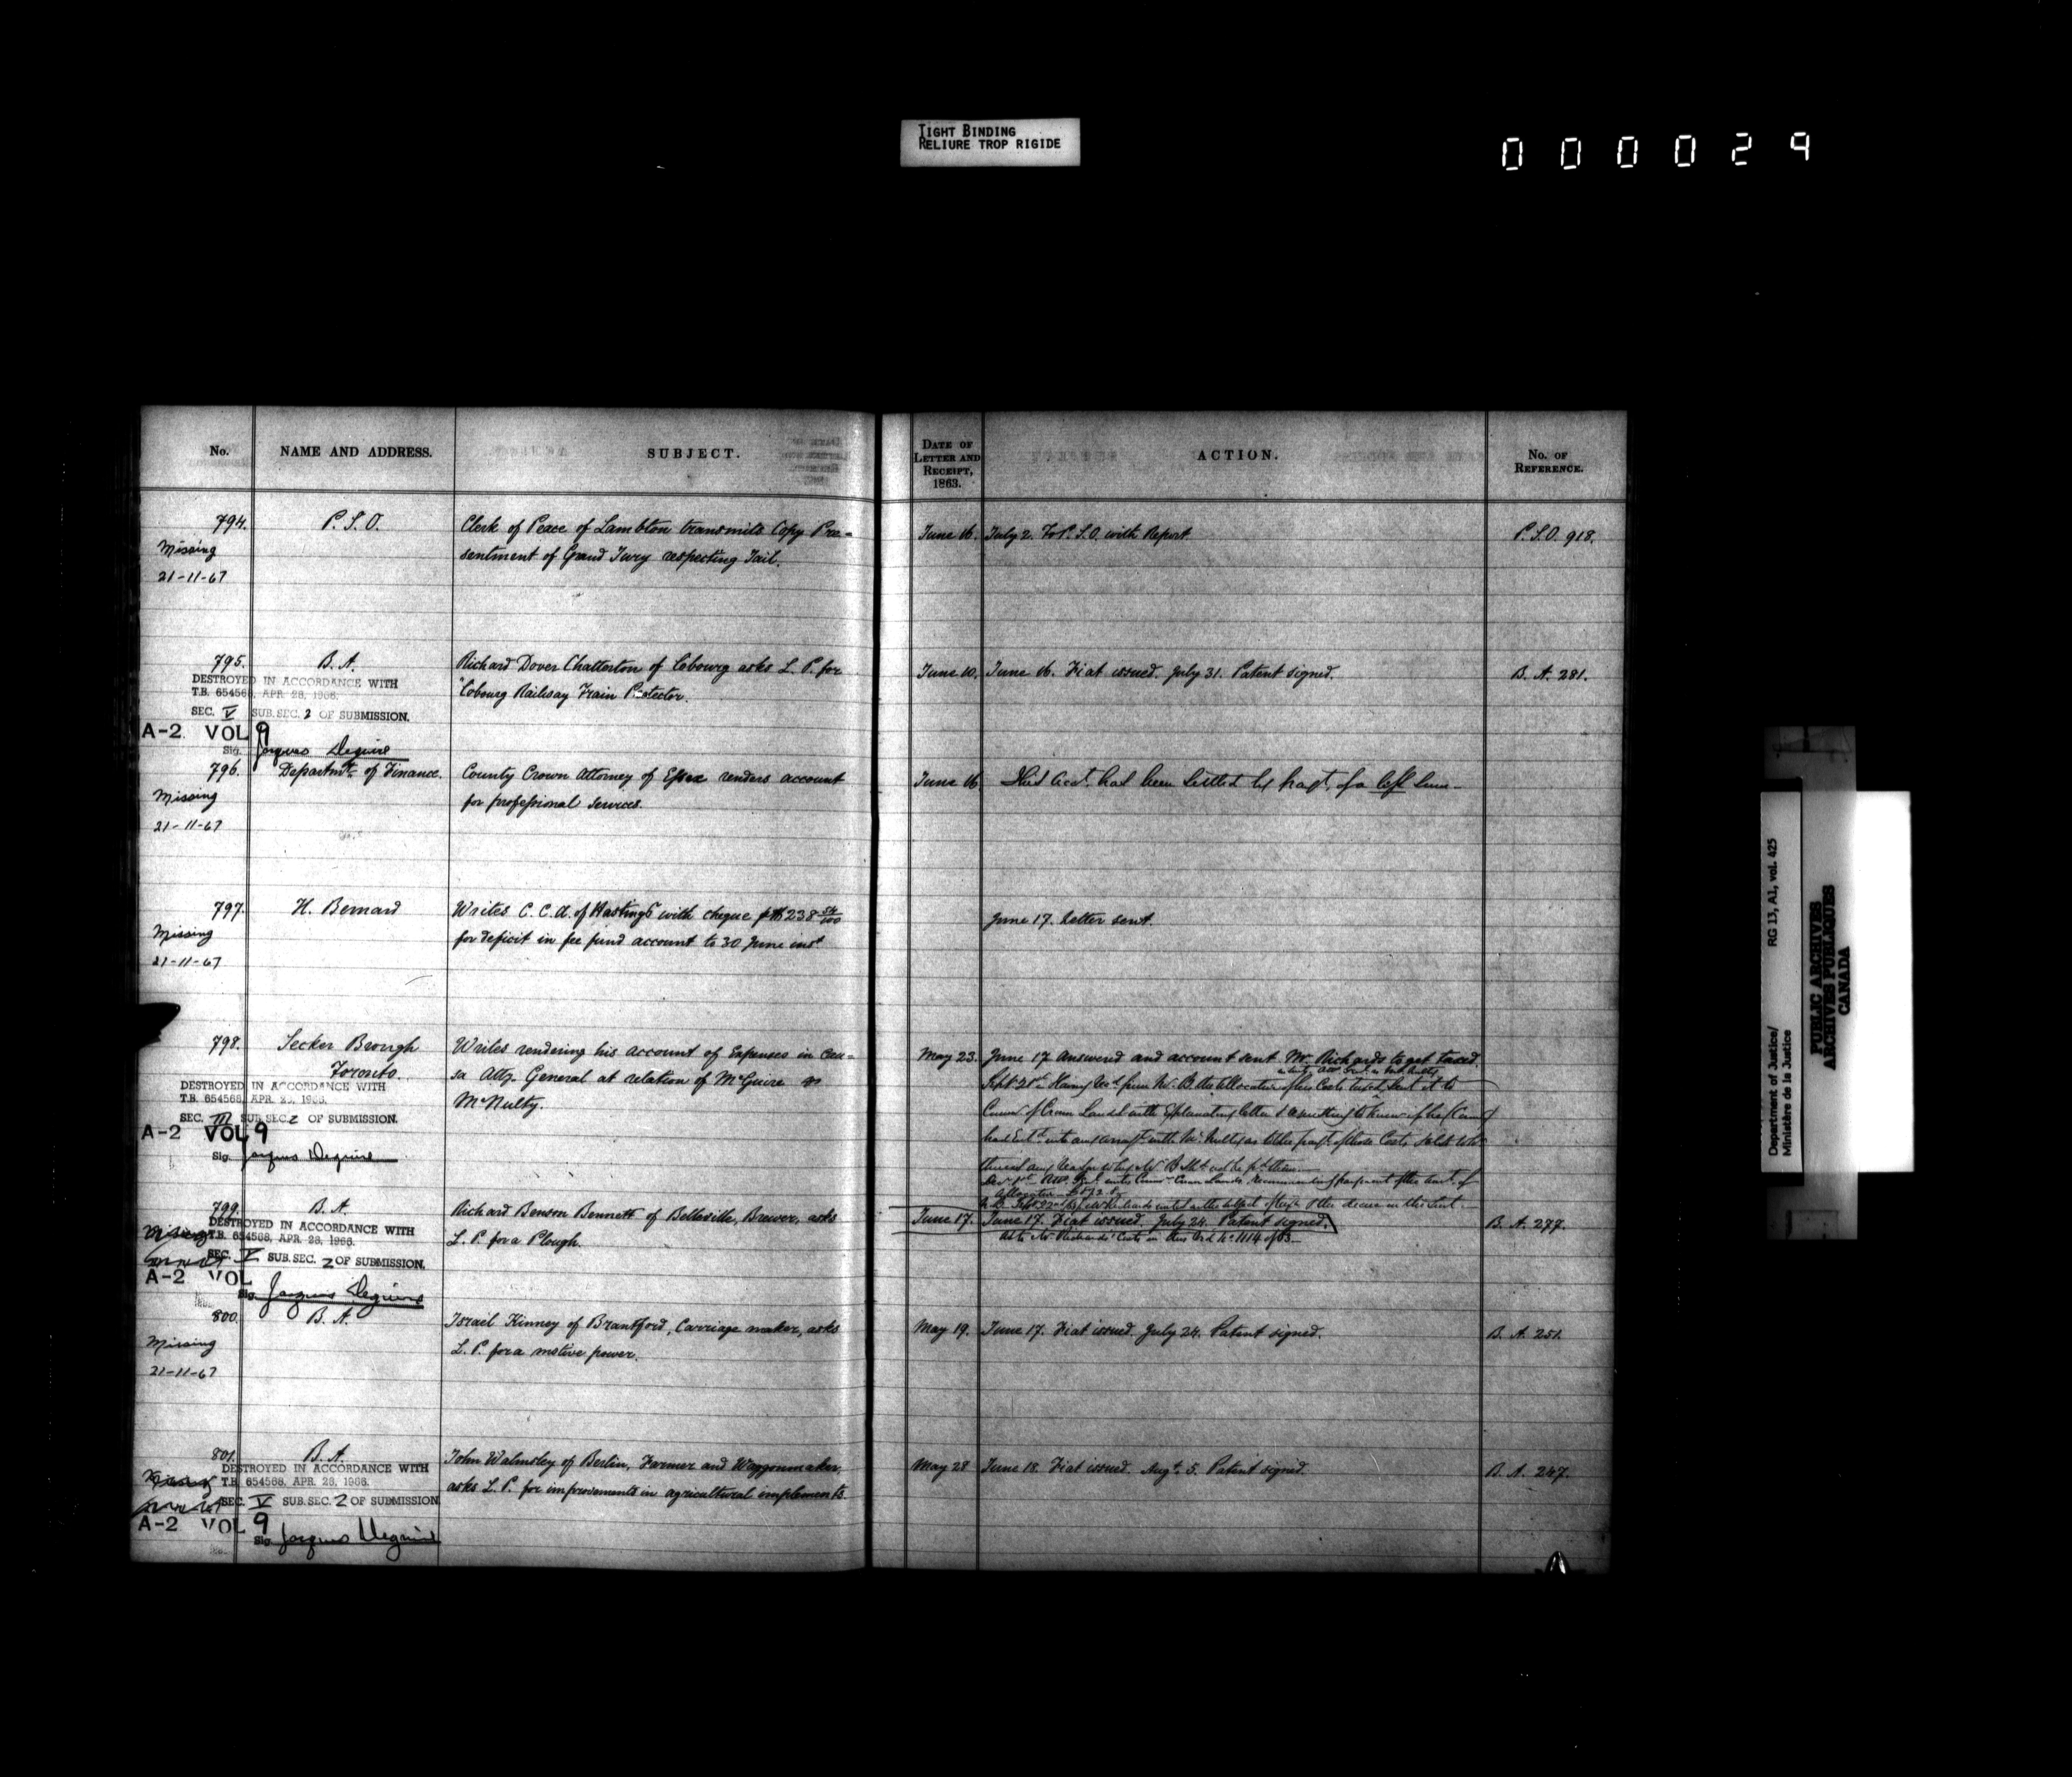 TIGHT BINDING
RELIURE TROP RIGIDE
000029
No.
NAME AND ADDRESS.
SUBJECT.
DATE OF
LETTER AND
RECEIPT,
1863.
ACTION.
No. OF
REFERENCE.
794. P.S.O. Clerk of Peace of Lambton transmits Copy Pre-
Missing
sentment of Grand Jury respecting Jail.
21-11-67
June 16. July 2. To P.S.O. with Report P.S.O. 918.
795. B.A. Richard Dover Chatterton of Cobourg asks L.P. for
"Cobourg Railway Train Protector.
DESTROYED IN ACCORDANCE WITH
T.B. 654568, APR. 28, 1966.
SEC. V SUB. SEC. 2 OF SUBMISSION.
A-2 VOL 9
Sig. Jacques Deguire
June 10. June 16. Fiat issued. July 31. Patent signed. B.A. 281.
796. Departmt. of Finance. County Crown Attorney of Essex renders account
for professional services.
Missing
21-11-67
June 16 This acct. had been settled by
797. H. Bernard Writes C.C.A. of Hastings with cheque 238 54/100
for deficit in fee fund account to 30 June inst
Missing
21-11-67
June 17. Letter sent.
798. Secker Brough Writes rendering his account of Expenses in cau-
Toronto. sa Atty. General at relation of McGuire vs
McNulty.
DESTROYED IN ACCORDANCE WITH
T.B. 654568, APR. 28, 1966.
SEC. III SUB. SEC. 2 OF SUBMISSION.
A-2 VOL 9
Sig. Jacques Deguire
May 23. June 17 Answered and account sent Mr. Richards to get taxed.
799. B.A. Richard Benson Bennett of Belleville, Brewer, asks
L.P. for a Plough.
DESTROYED IN ACCORDANCE WITH
T.B. 654568, APR. 28, 1966.
SEC. V SUB. SEC. 2 OF SUBMISSION.
A-2 VOL
Sig. Jacques Deguire
June 17. June 17. Fiat issued. July 24. Patent signed. B.A. 277.
800. B.A. Israel Kinney of Brantford, Carriage maker, asks
L.P. for a motive power.
Missing
21-11-67
May 19. June 17. Fiat issued. July 24. Patent signed. B.A. 251.
801. B.A. John Walmsley of Berlin, Farmer and Waggonmaker,
asks L.P. for improvements in agricultural implements.
DESTROYED IN ACCORDANCE WITH
T.B. 654568, APR. 28, 1966.
SEC. V SUB. SEC. 2 OF SUBMISSION.
A-2 VOL 9
Sig. Jacques Deguire
May 28 June 18. Fiat issued. Augt. 5. Patent signed. B.A. 247.
Department of Justice/ RG 13, A1, vol. 425
Ministère de la Justice
PUBLIC ARCHIVES
ARCHIVES PUBLIQUES
CANADA